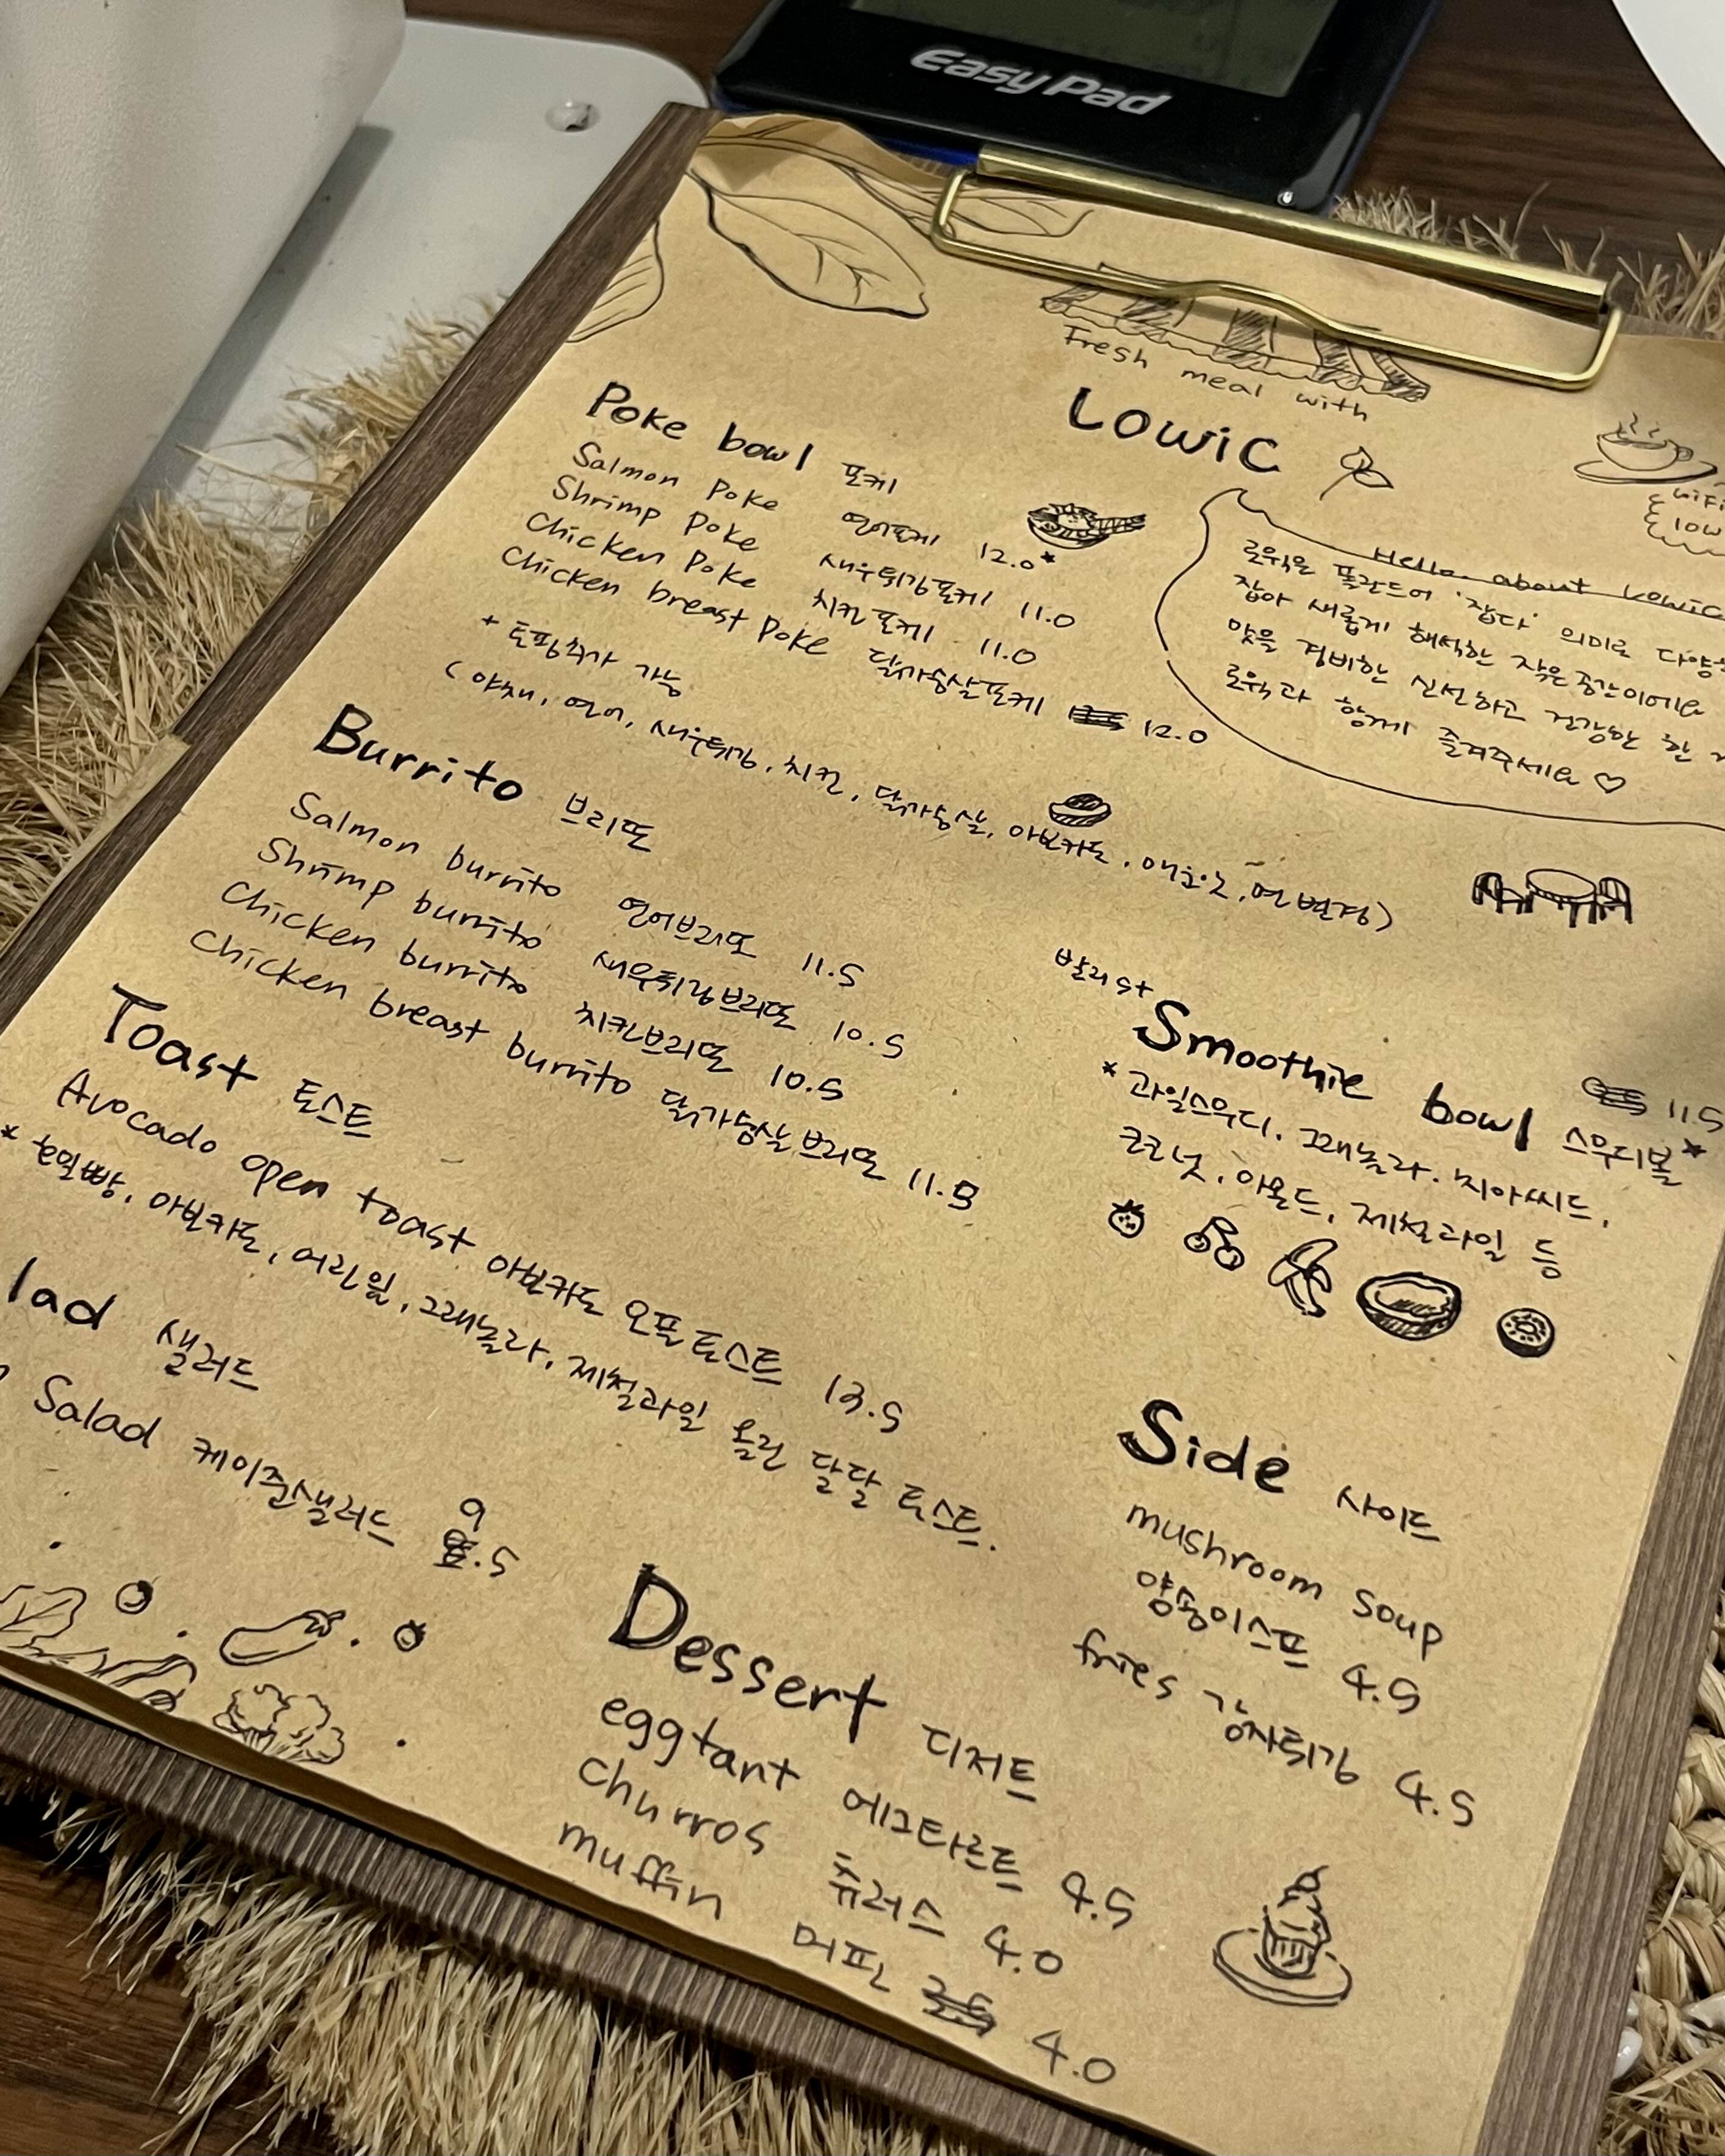 Easy Pad
Fresh meal with
Lowic
Poke bowl 포케
Salmon Poke 연어포케 12.0*
Shrimp Poke 새우튀김포케 11.0
Chicken Poke 치킨포케 11.0
Chicken breast Poke 닭가슴살포케 12.0
+ 토핑추가 가능
(야채, 연어, 새우튀김, 치킨, 닭가슴살, 아보카도, 메밀면변경)
Hello. about Lowic
로윅은 폴란드어 '잡다' 의미로
잡아 새롭게 해석한 작은공간이에요
맛을 겸비한 신선하고 건강한 한
로윅과 함께 즐겨주세요 ♡
Burrito 브리또
Salmon burrito 연어브리또 11.5
Shrimp burrito 새우튀김브리또 10.5
Chicken burrito 치킨브리또 10.5
Chicken breast burrito 닭가슴살브리또 11.5
Toast 토스트
Avocado open toast 아보카도 오픈토스트 13.5
* 호밀빵, 아보카도, 어린잎, 그래놀라, 제철과일 올린 달달 토스트.
lad 샐러드
Salad 케이준샐러드 9.5
발리st
Smoothie bowl 스무디볼* 11.5
* 과일스무디, 그래놀라, 치아씨드,
코코넛, 아몬드, 제철과일 등
Side 사이드
mushroom soup
양송이스프 4.5
fries 감자튀김 4.5
Dessert 디저트
eggtart 에그타르트 4.5
churros 츄러스 4.0
muffin 머핀 4.0